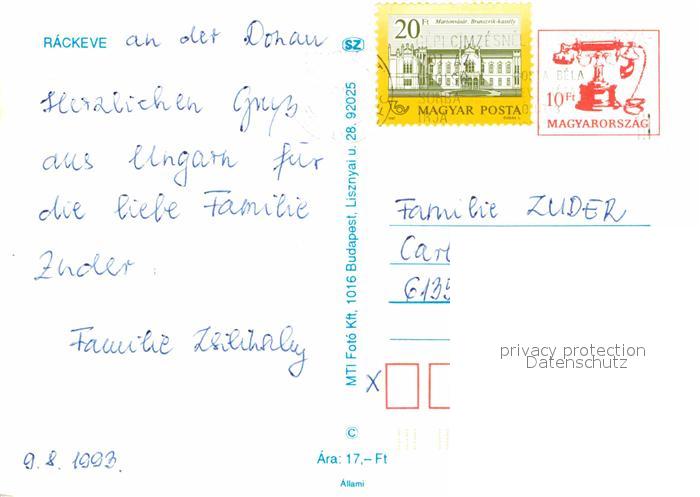 RÁCKEVE an der Donau
Herzlichen Gruß
aus Ungarn für
die liebe Familie
Zuder
Familie
9.8.1993.
SZ
MTI Fotó Kft, 1016 Budapest, Lisznyai u. 28. 92025
©
Ára: 17,– Ft
Állami
20 Ft
Martonvásár, Brunszvik-kastély
MAGYAR POSTA
10 Ft
MAGYARORSZÁG
Familie ZUDER
6135
X
privacy protection
Datenschutz